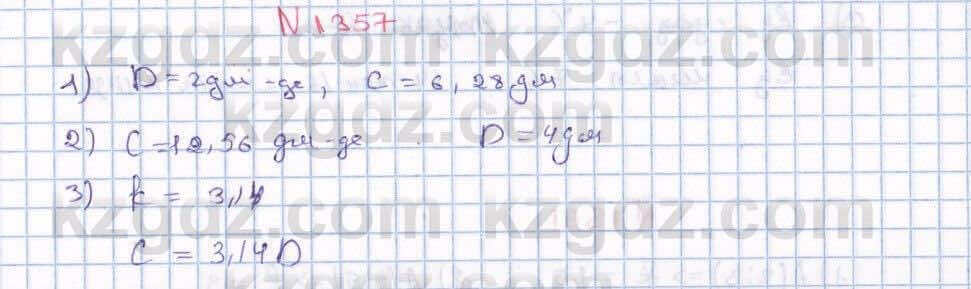 N 1357
1) D = 2дм-де, C = 6,28дм
2) C = 12,56 дм-де D = 4дм
3) k = 3,14
C = 3,14D
kzgdz.com
kzgdz.com
kzgdz.com
kzgdz.com
kzgdz.com